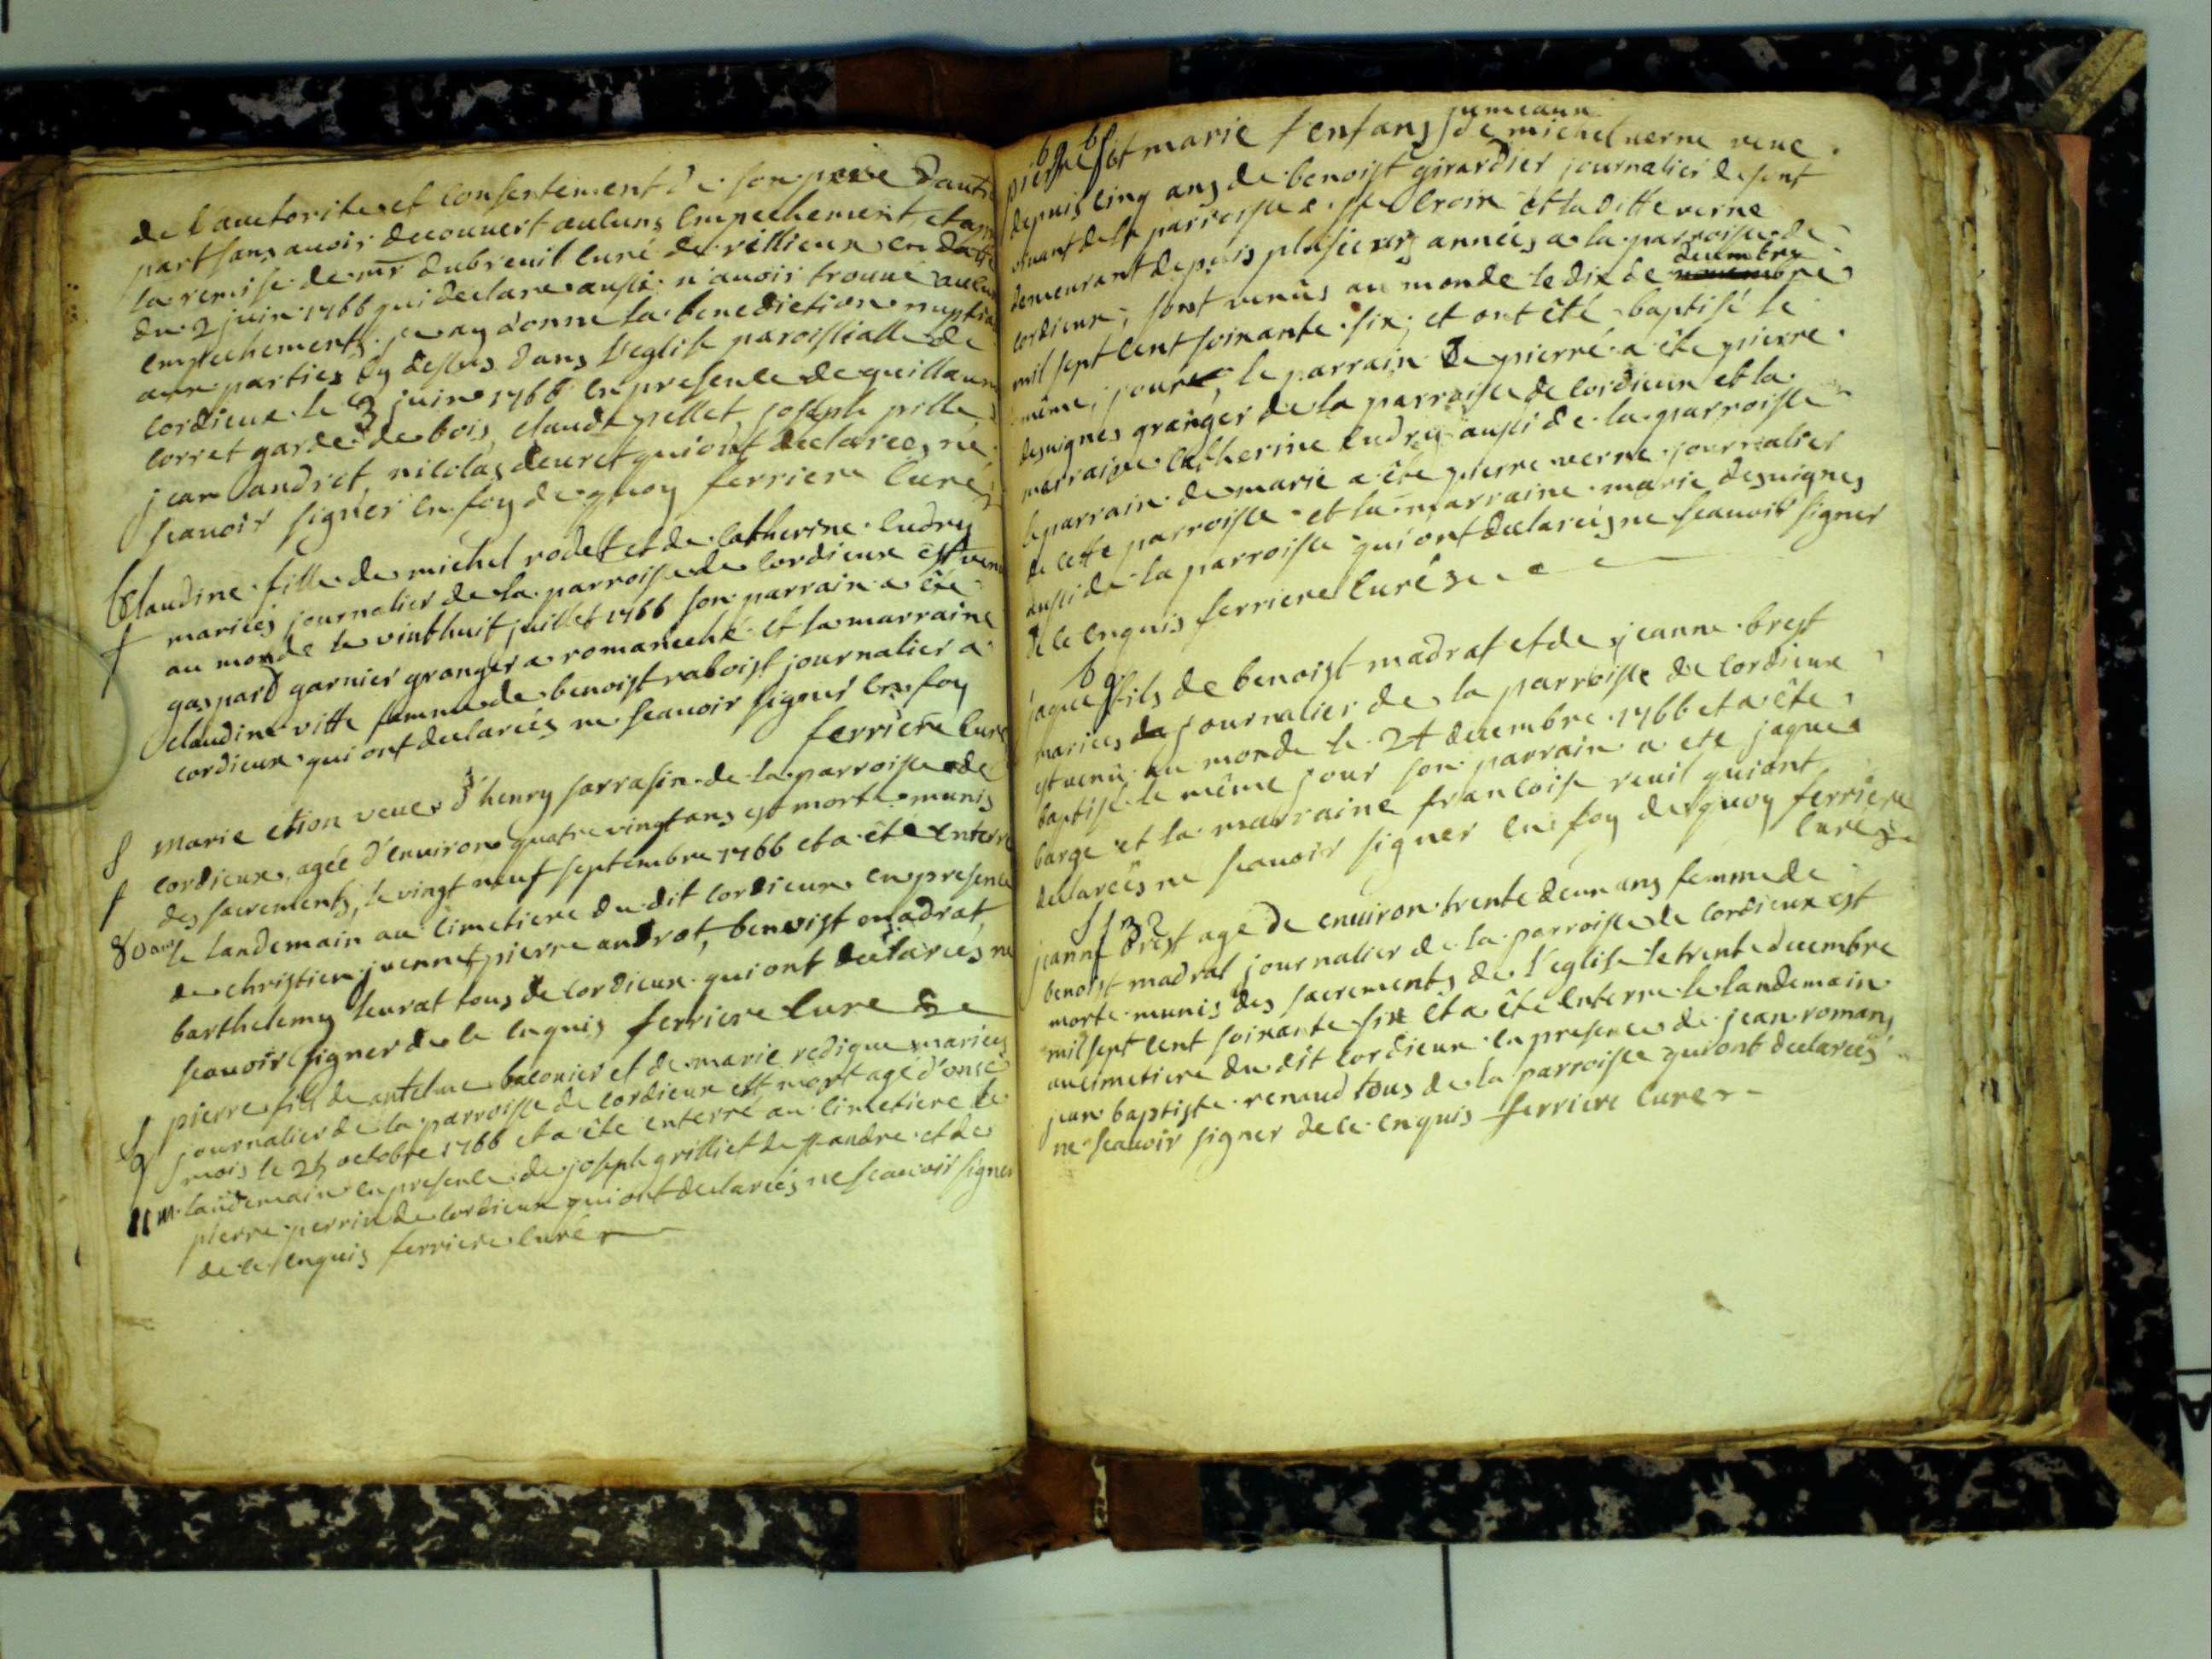 de l'auctorite et consentement de son pere d'autre
part sans avoir decouvert auluns empechement et apres
la remise de mr dubreuil curé de rillieux en datte
du 2 juin 1766 qui declare aussi n'avoir trouvé aucun
empechements je ay donné la benediction nuptia
aux parties cy dessus dans l'eglise paroissialle de
cordieux le 3 juin 1766 en presence de guillaum
corret garde de bois, claude pellet, joseph pille
jean andret, nicolas deuret qui ont declarees ne
scavoir signer en foy de quoy ferriere curé
Claudine fille de michel rodet et de catherine cudry
mariées journalier de la parroisse de cordieux est venu
au monde le vinthuit juillet 1766 son parrain a été
f
gaspard garnier granger a romaneche et la marraine
claudine vitte femme de benoist raboist journalier a
cordieux qui ont declarées ne scavoir signer en foy
ferriere curé
marie etion veuve d'henry sarrasin de la parroisse de
S
cordieux, agée d'environ quatre vingt ans est morte munis
f
des sacrements, le vingt neuf septembre 1766 et a été enterré
80 ans
le landemain au cimetiere du dit cordieux en presence
de christien juennet pierre andrat, benoist madrat,
barthelemy leurat tous de cordieux qui ont declarées ne
scavoir signer de ce enquis ferriere curé
pierre fils de antelme baconier et de marie redigue mariées
S
journalier de la parroisse de cordieux est mort agé d'onse
g
mois le 25 octobre 1766 et a été enterré au cimetiere le
11 m.
landemain en presence de joseph grilliet de st andre et de
pierre perrin de cordieux qui ont declarés ne scavoir signer
de ce enquis ferriere curé
bg bf
jumeaux
pierre et marie enfans de michel verne veue
depuis cinq ans de benoist girardier journalier defunt
vivant de la parroisse ste croix et la ditte verne
demeurant depuis plusieurs années a la parroisse de
decembre
cordieux, sont venus au monde le dix de novembre
mil sept cent soixante six, et ont été baptisé le
même, jour, le parrain de pierre a été pierre
desvignes granger de la parroisse de cordieux et la
marraine catherine cudry aussi de la parroisse
le parrain de marie a été pierre verne journalier
de cette parroisse et la marraine marie desvignes
aussi de la parroisse qui ont declarées ne scavoir signer
de ce enquis ferriere curé
bg
jaque fils de benoist madrat et de jeanne brest
mariées journalier de la parroisse de cordieux
est venu au monde le 24 decembre 1766 et a été
baptisé le même jour son parrain a eté jaques
barge et la marraine francoise revil qui ont
declarées ne scavoir signer en foy de quoy ferriere
curé
Sf 32
jeanne brest agé de environ trente deux ans femme de
benoist madrat journalier de la parroisse de cordieux est
morte munis des sacrements de l'eglise le trente decembre
mil sept cent soixante six et a été enterré le landemain
au cimetiere du dit cordieux en presence de jean romans
jean baptiste renaud tous de la parroisse qui ont declarées
ne scavoir signer de ce enquis ferriere curé